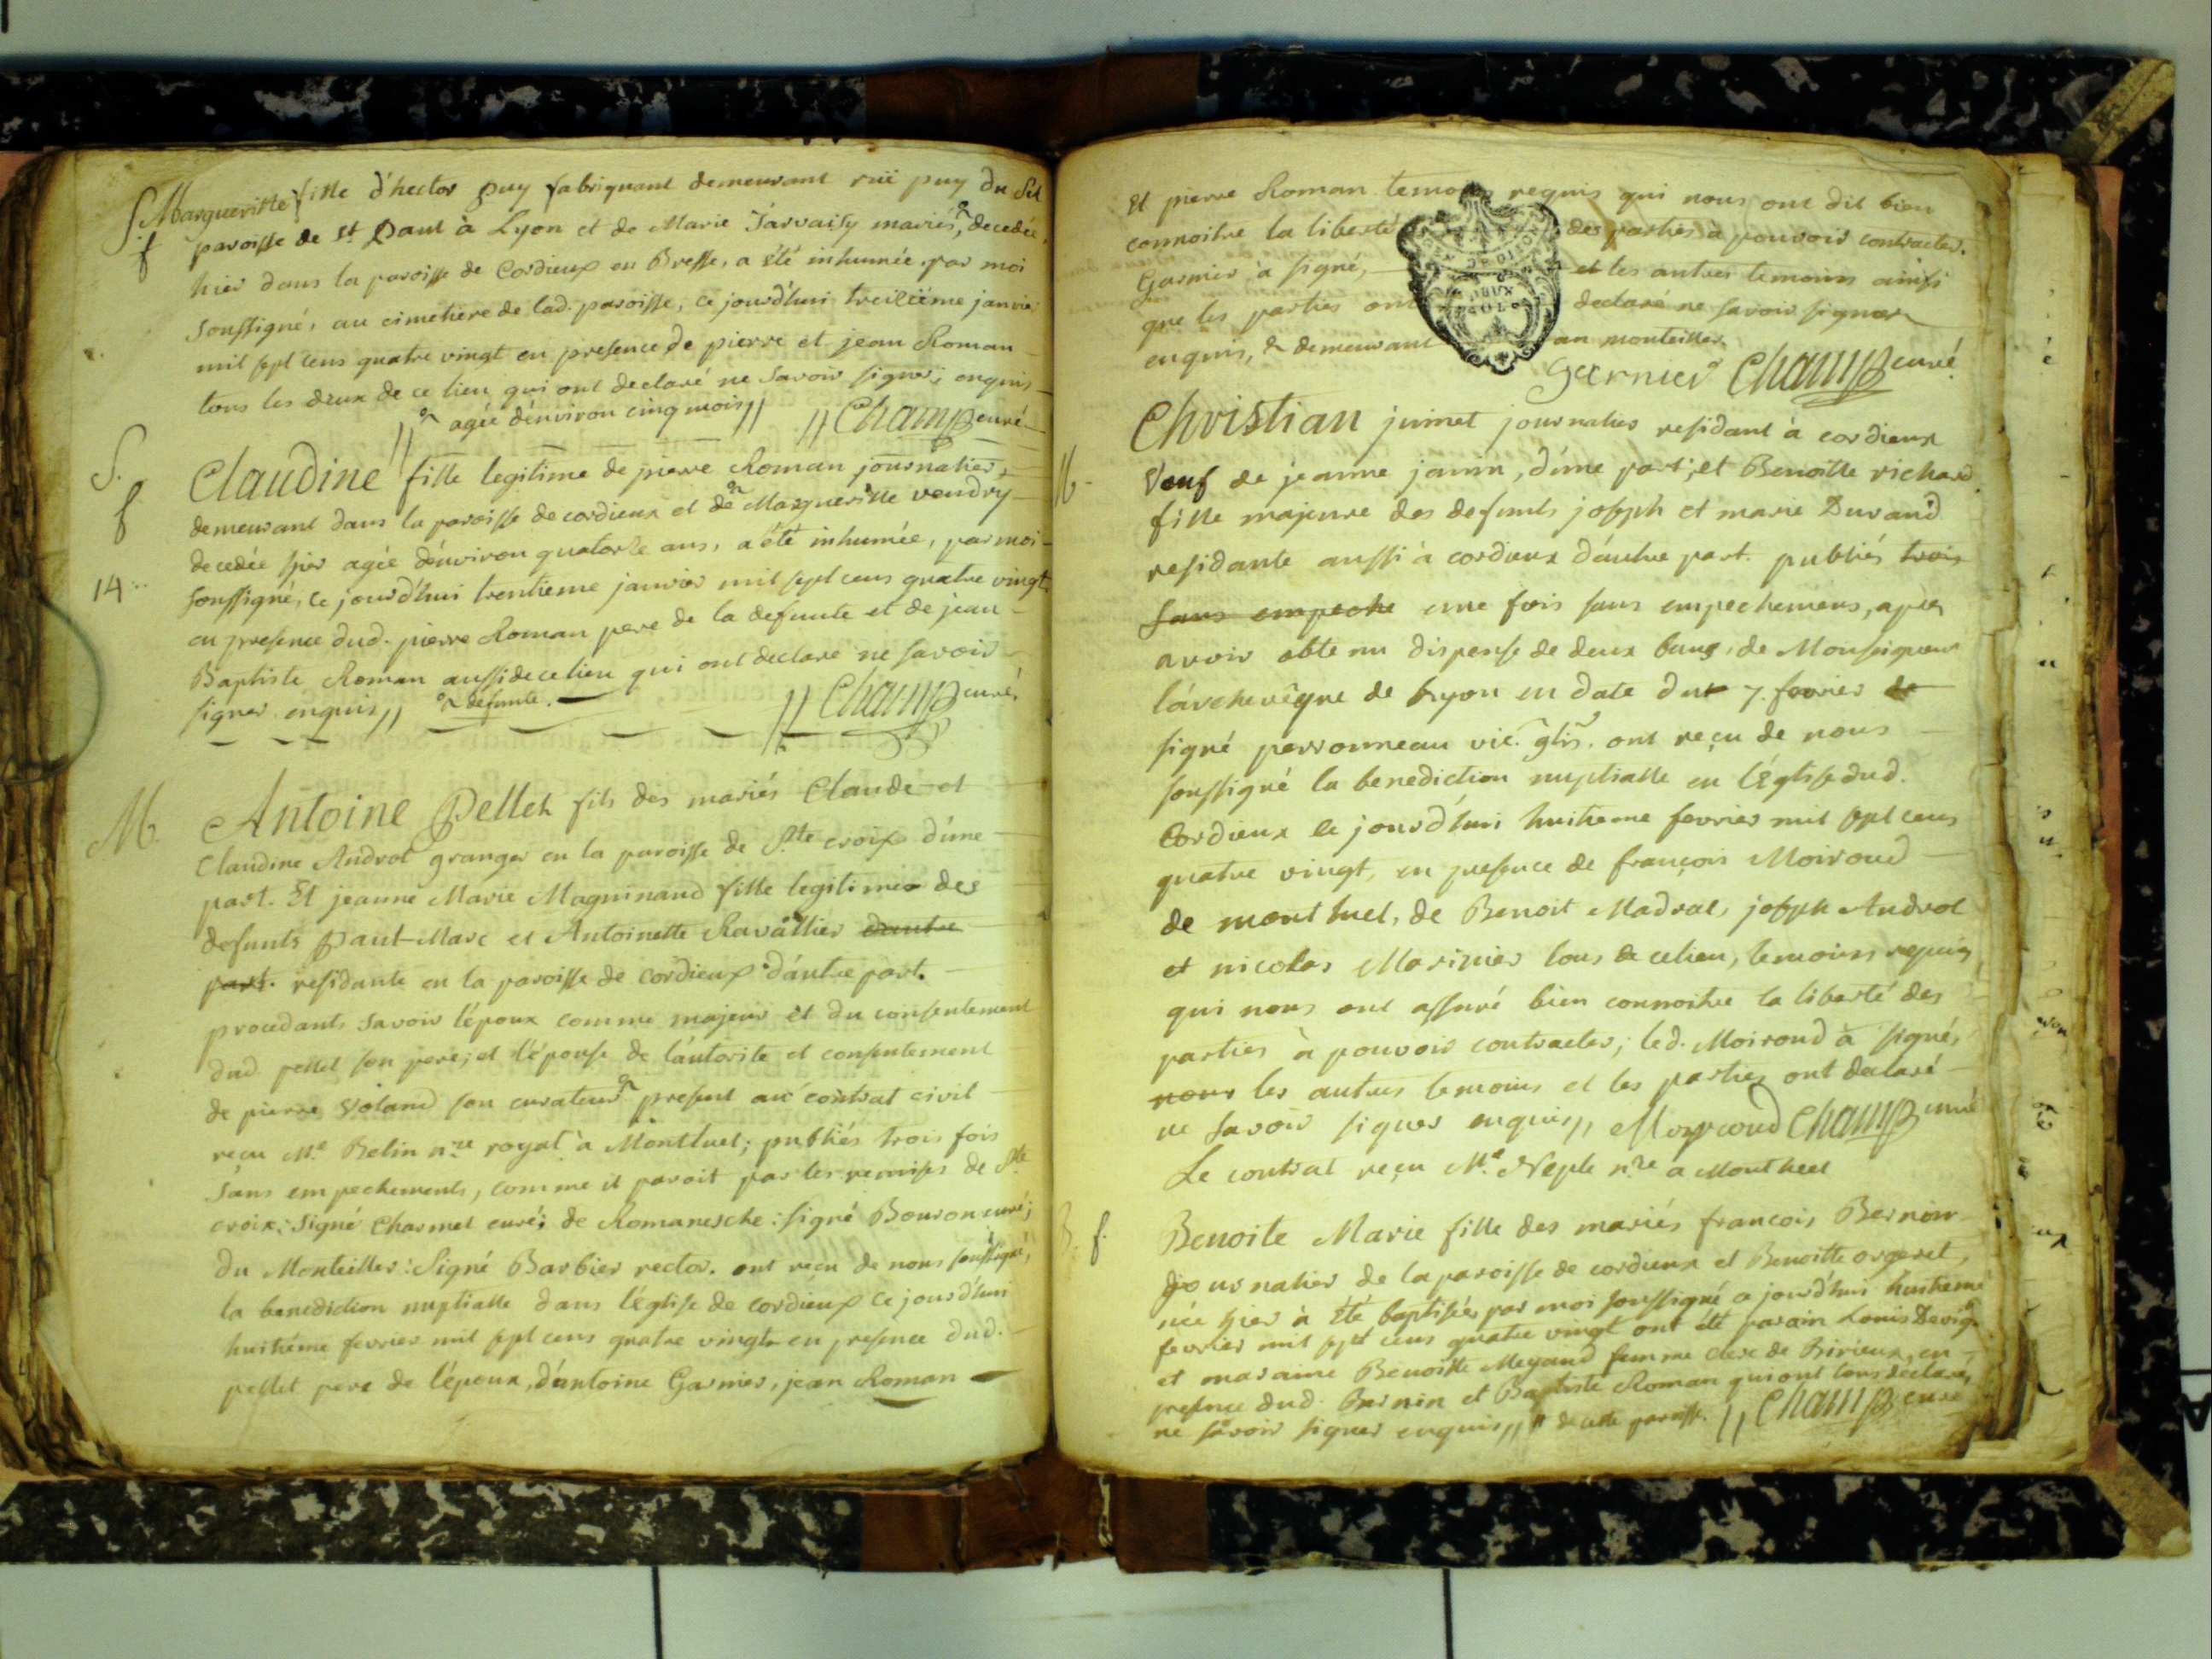 S Margueritte fille d'hector puy fabriquant demeurant rüe puy du Sel
f paroisse de St. Paul à Lyon et de Marie Jarvaisy mariés, decedée
hier dans la paroisse de Cordieux en Bresse, a été inhumée par moi
soussigné, au cimetiere de lad. paroisse, ce jourd'hui treiziéme janvier
mil sept cens quatre vingt en presence de pierre et jean Roman
tous les deux de ce lieu qui ont declaré ne savoir signer, enquis
agée d'environ cinq mois // // Champ curé
S.
f
14
Claudine fille legitime de pierre Roman journalier,
demeurant dans la paroisse de cordieux et de Margueritte vendry
decedée hier agée d'environ quatorze ans, a été inhumée, par moi
soussigné, ce jourd'hui trentieme janvier mil sept cens quatre vingt
en presence dud. pierre Roman pere de la defunte et de jean
Baptiste Roman aussi de ce lieu qui ont declaré ne savoir
signer enquis // defunte. // Champ curé
M. Antoine Pellet fils des mariés Claude et
Claudine Androt granger en la paroisse de Ste croix d'une
part. Et jeanne Marie Magninand fille legitime des
defunts Paul-Marc et Antoinette Ravattier dautre
part. residante en la paroisse de cordieux d'autre part.
procedants savoir l'époux comme majeur et du consentement
dud. pellet son pere; et l'épouse de l'autorite et consentement
de pierre Voland son curateur present au contrat civil
reçu Me. Belin nre royal à Montluel; publiés trois fois
sans empechements, comme il paroit par les remises de Ste
croix: signé Charmet curé; de Romanesche: signé Bouron curé;
du Monteiller: Signé Barbier rector. ont reçu de nous soussigné,
la benediction nuptialle dans l'église de cordieux ce jourd'hui
huitiéme fevrier mil sept cens quatre vingt en presence dud.
pellet pere de l'époux, d'antoine Garnier, jean Roman
Et pierre Roman temoins requis qui nous ont dit bien
connoitre la liberté des parties à pouvoir contracter.
Garnier a signé, et les autres temoins ainsi
que les parties ont declaré ne savoir signer
enquis, & demeurant au monteiller.
Garnier Champ curé
M. Christian juinet journalier residant à cordieux
Veuf de jeanne janin, d'une part; et Benoitte richard
fille majeure des defunts joseph et marie Durand
residante aussi à cordieux d'autre part. publiés trois
sans empeche une fois sans empechemens, apres
avoir obtenu dispense de deux bans, de Monseigneur
l'archevêque de Lyon en date du 7. fevrier de
signé perronneau vic. glis. ont reçu de nous
soussigné la benediction nuptialle en l'église dud.
Cordieux ce jourd'hui huitieme fevrier mil sept cens
quatre vingt, en presence de françois Moiroud
de montluel, de Benoit Madrat, joseph Androt
et nicolas Marinier tous de ce lieu, temoins requis
qui nous ont assuré bien connoitre la liberté des
parties à pouvoir contracter; led. Moiroud à signé,
nous les autres temoins et les parties ont declaré
ne savoir signer enquis // Moyroud Champ curé
Le contrat reçu Me. Neple nre a Montluel
B. f. Benoite Marie fille des mariés francois Bernin
journalier de la paroisse de cordieux et Benoitte orgeret,
née hier à été baptisée par moi soussigné a jourd'hui huitieme
fevrier mil sept cens quatre vingt ont été parain Louis
et maraine Benoitte Megand femme clerc de Birieux, en
presence dud. Bernin et Baptiste Roman qui ont tous declaré,
ne savoir signer enquis // de cette paroisse. // Champ curé